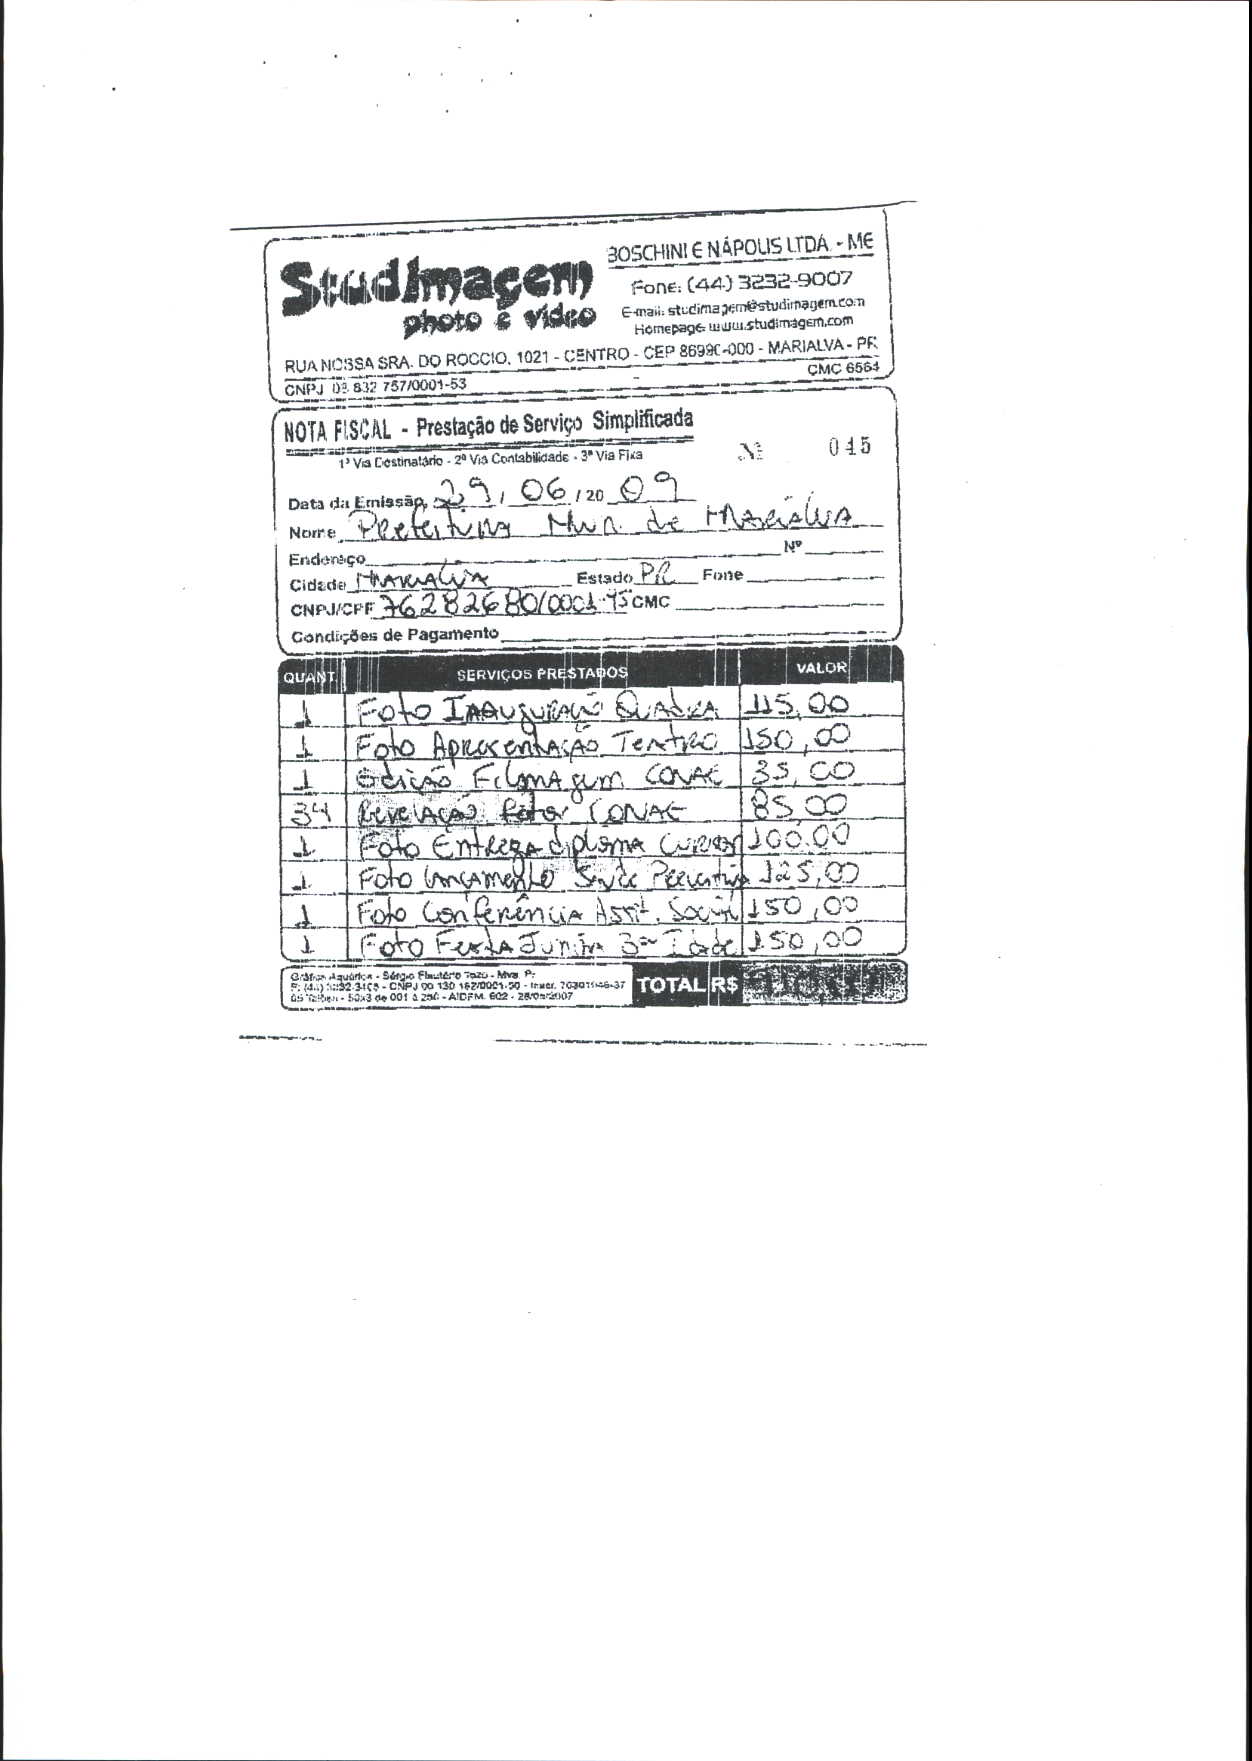 StudImagem
photo e vídeo
BOSCHINI E NÁPOLIS LTDA. - ME
Fone: (44) 3232-9007
E-mail: studimagem@studimagem.com
Homepage www.studimagem.com
RUA NOSSA SRA. DO ROCCIO, 1021 - CENTRO - CEP 86990-000 - MARIALVA - PR
CNPJ 03 832 757/0001-53
CMC 6564
NOTA FISCAL - Prestação de Serviço Simplificada
1ª Via Destinatário - 2ª Via Contabilidade - 3ª Via Fixa
Nº 045
Data da Emissão 29 / 06 / 20 09
Nome Prefeitura Mun. de MARIALVA
Endereço Nº
Cidade MARIALVA Estado PR Fone
CNPJ/CPF 76282680/0001-45 CMC
Condições de Pagamento
QUANT. SERVIÇOS PRESTADOS VALOR
1 Foto Inauguração Quadra 115,00
1 Foto Apresentação Teatro 150,00
1 Edição Filmagem CONAE 35,00
34 Revelação fotos CONAE 85,00
1 Foto Entrega diploma Cursos 100,00
1 Foto Lançamento Preventiva 125,00
1 Foto Conferência Assit. Social 150,00
1 Foto Festa Junina 3ª Idade 150,00
Gráfica Aquárius - Sérgio Tozo - Mva. Pr
05 Talões - 50x3 de 001 a 250 - AIDFM. 602 - 28/05/2007
TOTAL R$